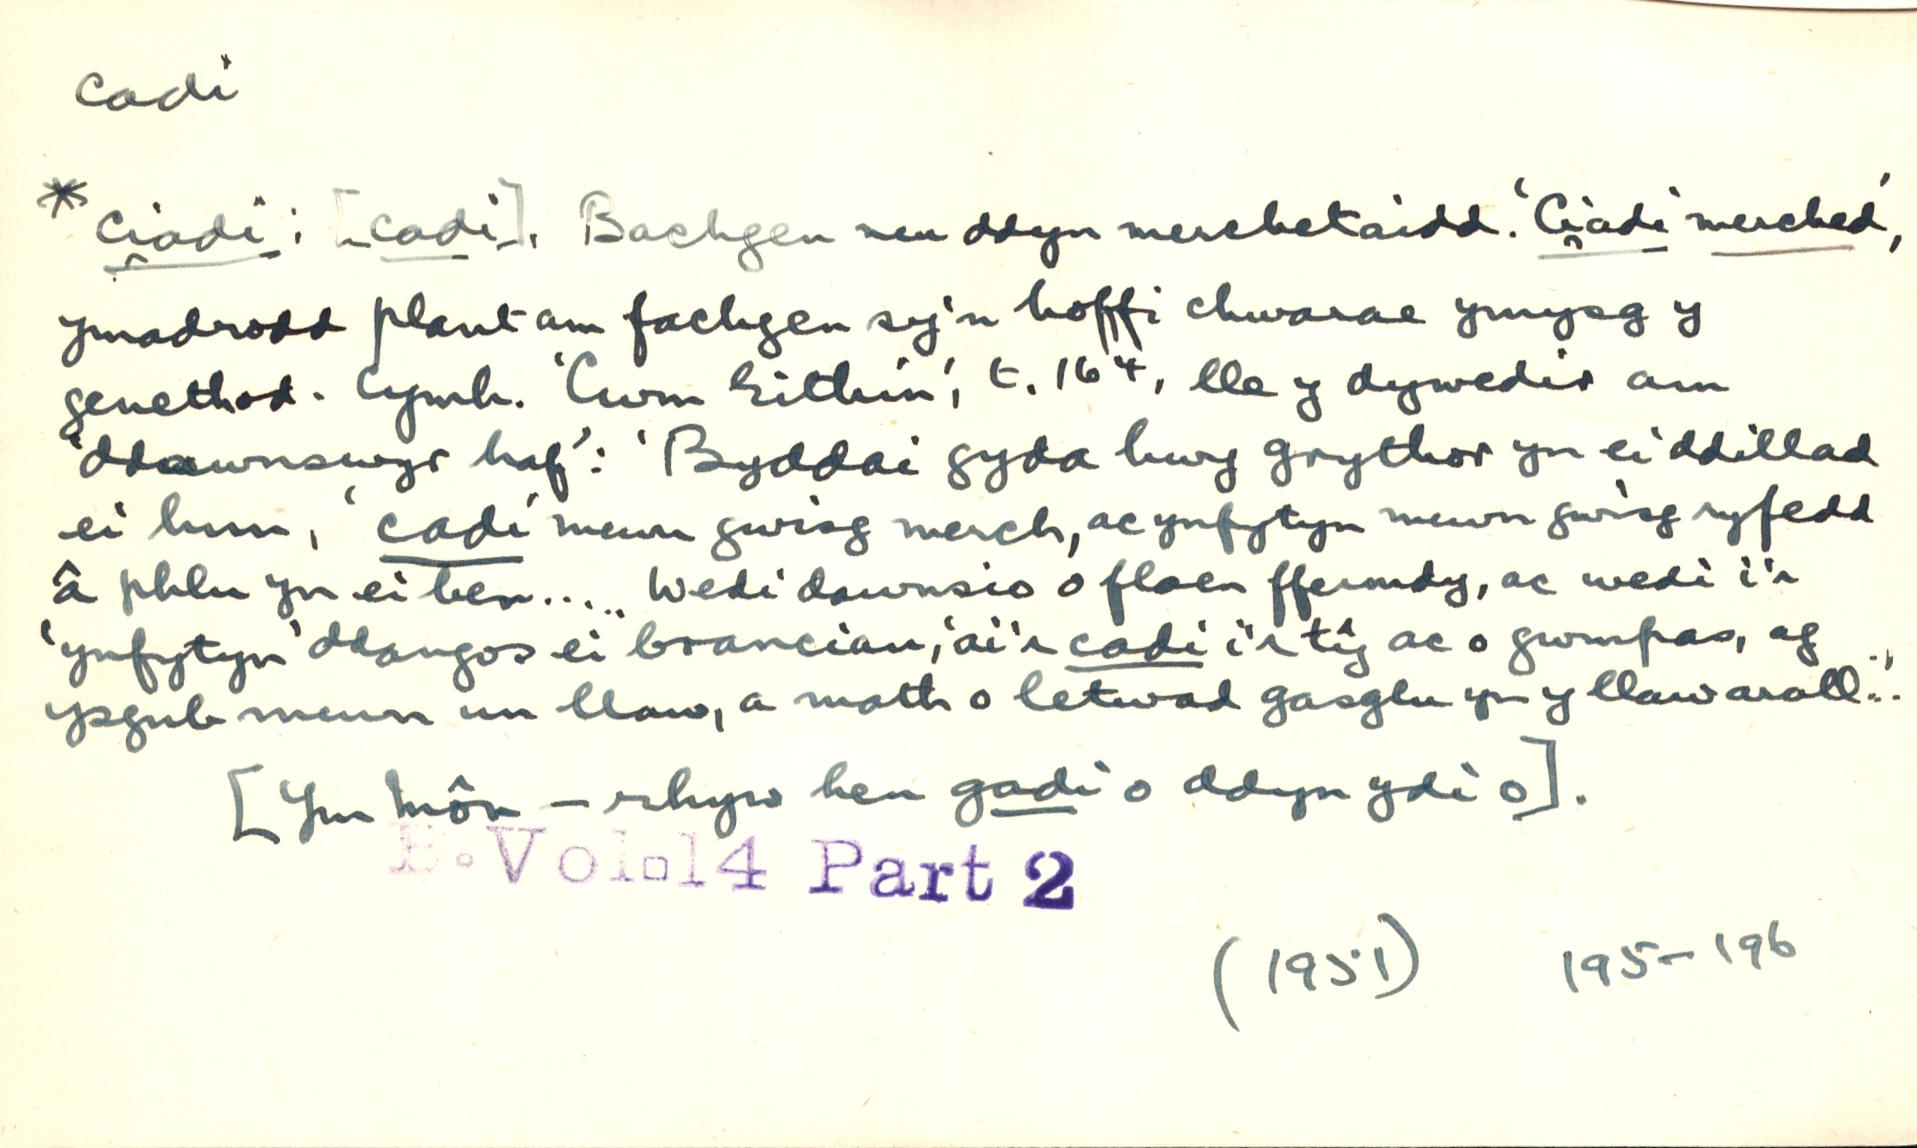 cadi
* Ci̯adi: [cadi]. Bachgen neu ddyn merchetaidd. 'Ci̯adi merched',
ymadrodd plant am fachgen sy'n hoffi chwarae ymysg y
genethod. Cymh. 'Cwm Eithin', t. 164, lle y dywedir am
'ddawnswyr haf': 'Byddai gyda hwy grythor yn ei ddillad
ei hun, 'cadi' mewn gwisg merch, ac ynfytyn mewn gwisg ryfedd
â phlu yn ei ben..... Wedi dawnsio o flaen ffermdy, ac wedi i'r
'ynfytyn' ddangos ei brancian, 'ai'r cadi i'r tŷ ac o gwmpas, ag
ysgub mewn un llaw, a math o letwad gasglu yn y llaw arall...'
[Ym Môn – rhyw hen gadi o ddyn ydi o].
B.Vol.14 Part 2
(1951) 195-196